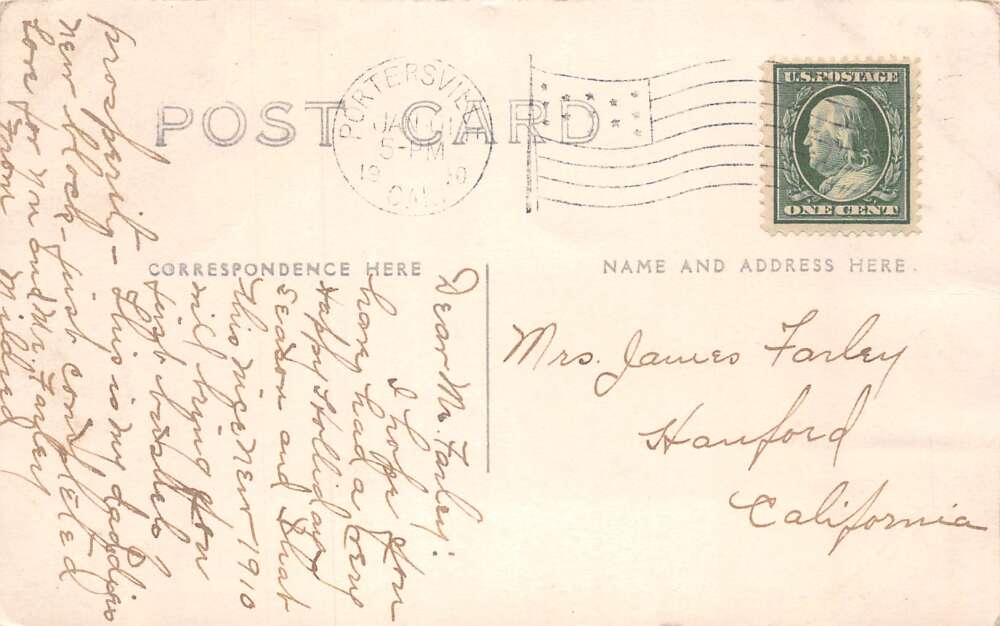 POST CARD
PORTERSVILLE
JAN
5-PM
1910
CAL.
U.S. POSTAGE
ONE CENT
CORRESPONDENCE HERE
NAME AND ADDRESS HERE.
Mrs. James Farley
Hanford
California
Dear M. Farley:
I hope you
have had a very
Happy Holliday
Season and that
this nice new 1910
will bring you
just bushels
prosperity - This is my daddies
new block - just completed
Love for you and Mr. Farley
From Mildred